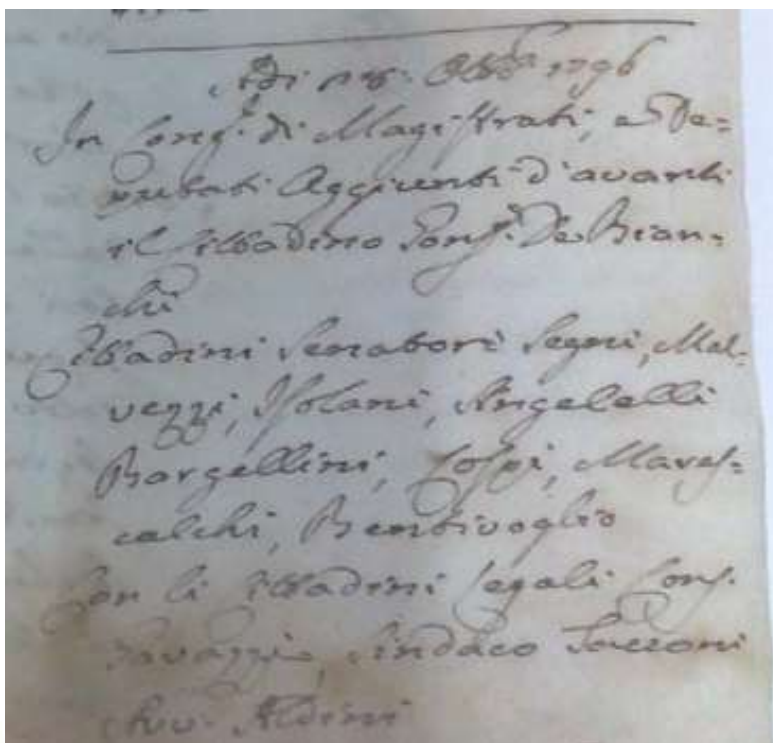 Adi 1796
In Cong.e di Magistrati, e De=
putati Aggiunti d'avanti
il Cittadino Gonf.e De Bian=
chi
Cittadini Senatori Segni, Mal=
vezzi, Isolani, Angelelli
Bargellini, Cospi, Mares=
calchi, Bentivoglio
Con li Cittadini Legali Cons.
Sindaco Sacconi
Avv. Aldini